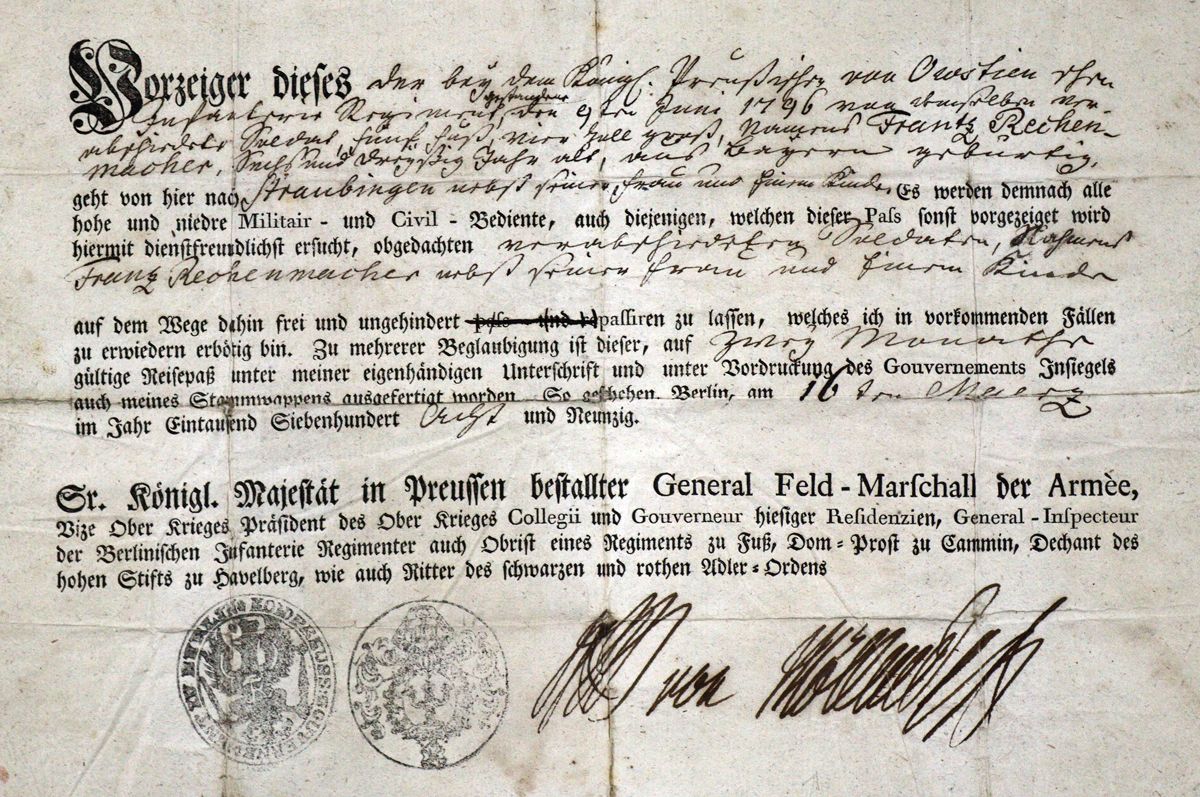 Vorzeiger dieses der bey dem Königl. Preußischen von Owstien schen
Infanterie Regiment gestandene den 9ten Juni 1796 von demselben ver-
abschiedete Soldat, fünf Fuß, vier Zoll groß, Namens Frantz Rechen-
macher, Sechs und dreyßig Jahr alt, aus Bayern gebürtig,
geht von hier nach Straubingen nebst seiner Frau und Einem Kinde. Es werden demnach alle
hohe und niedre Militair - und Civil - Bediente, auch diejenigen, welchen dieser Paſs sonst vorgezeiget wird
hiermit dienstfreundlichst ersucht, obgedachten verabschiedeten Soldaten, Nahmens
Frantz Rechenmacher nebst seiner Frau und Einem Kinde
auf dem Wege dahin frei und ungehindert paſs- und repaſſiren zu lassen, welches ich in vorkommenden Fällen
zu erwiedern erbötig bin. Zu mehrerer Beglaubigung ist dieser, auf Zwey Monathe
gültige Reisepaß unter meiner eigenhändigen Unterschrift und unter Vordruckung des Gouvernements Insiegels
auch meines Stammwappens ausgefertigt worden. So geschehen. Berlin, am 16ten Maerz
im Jahr Eintausend Siebenhundert Acht und Neunzig.
Sr. Königl. Majestät in Preussen bestallter General Feld-Marſchall der Armèe,
Vize Ober Krieges Präsident des Ober Krieges Collegii und Gouverneur hiesiger Reſidenzien, General-Inſpecteur
der Berlinischen Infanterie Regimenter auch Obrist eines Regiments zu Fuß, Dom-Prost zu Cammin, Dechant des
hohen Stifts zu Havelberg, wie auch Ritter des schwarzen und rothen Adler-Ordens
von Möllendorff